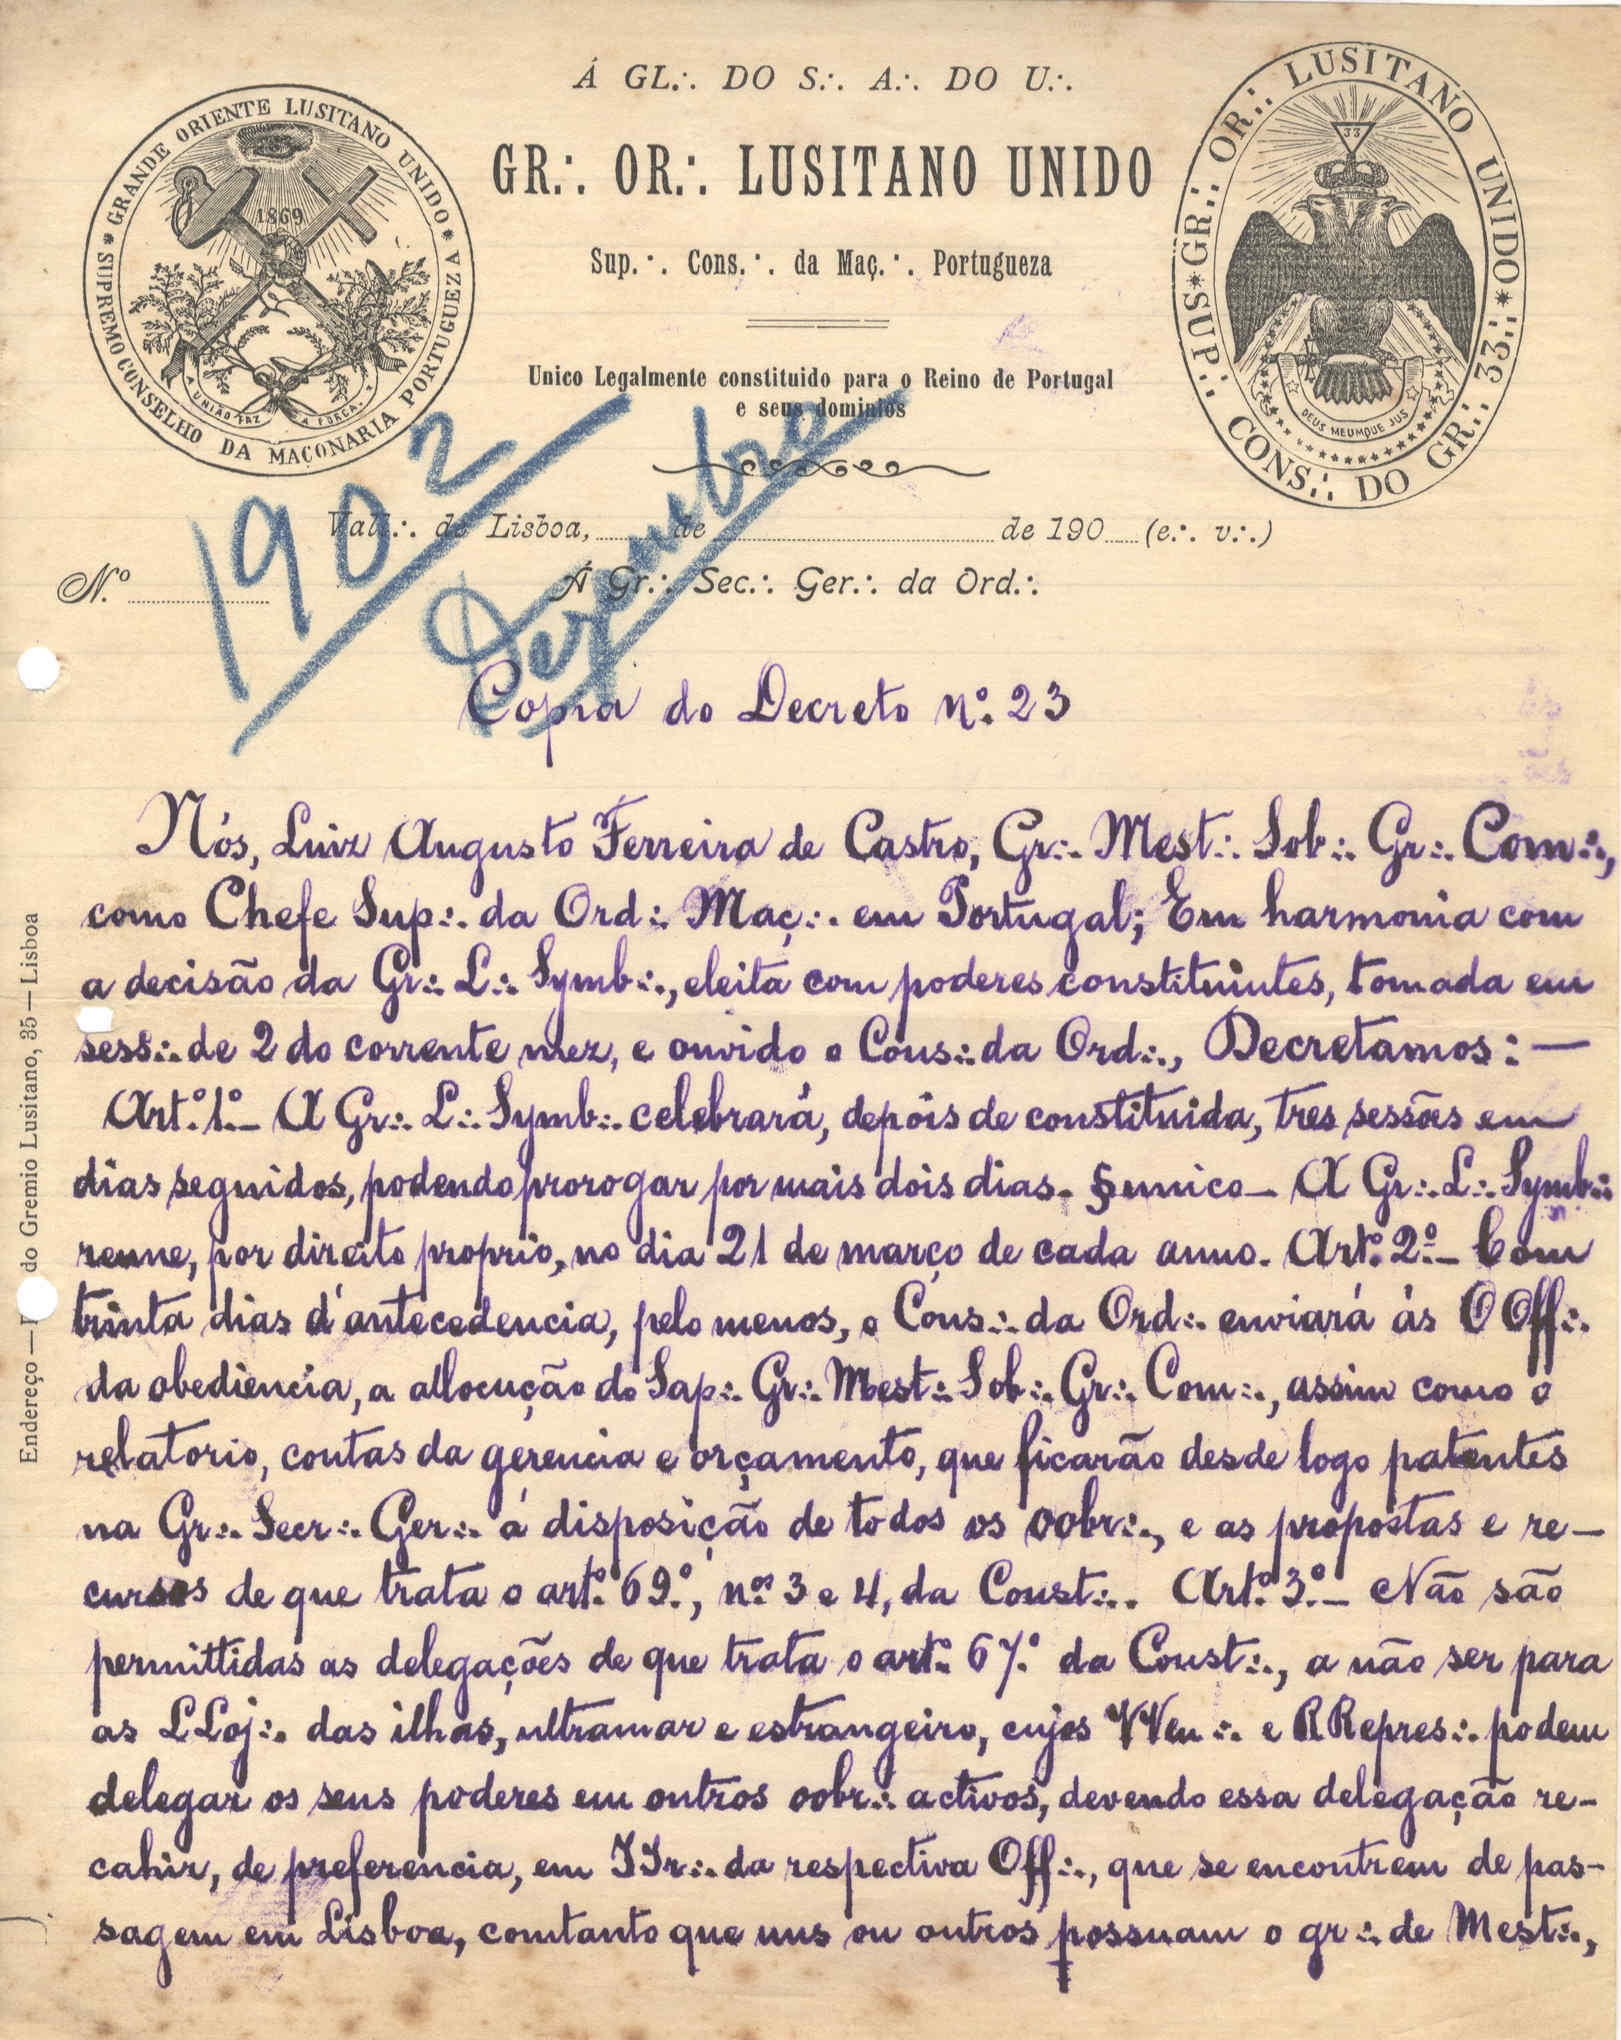 Á GL.·. DO S.·. A.·. DO U.·.
GR.·. OR.·. LUSITANO UNIDO
Sup.·. Cons.·. da Maç.·. Portugueza
Unico Legalmente constituido para o Reino de Portugal
e seus dominios
* GRANDE ORIENTE LUSITANO UNIDO *
SUPREMO CONSELHO DA MAÇONARIA PORTUGUEZA
1869
A UNIÃO FAZ A FORÇA
SUP.·. CONS.·. DO GR.·. 33.·. * GR.·. OR.·. LUSITANO UNIDO *
33
DEUS MEUMQUE JUS
1902
Dezembro
Vall.·. de Lisboa, de de 190 (e.·. v.·.)
N.º
Á Gr.·. Sec.·. Ger.·. da Ord.·.
Copia do Decreto nº. 23
Nós, Luiz Augusto Ferreira de Castro, Gr.·. Mest.·. Sob.·. Gr.·. Com.·.,
como Chefe Sup.·. da Ord.·. Maç.·. em Portugal; Em harmonia com
a decisão da Gr.·. L.·. Symb.·., eleita com poderes constituintes, tomada em
sess.·. de 2 do corrente mez, e ouvido o Cons.·. da Ord.·., Decretamos: —
Artº. 1º. — A Gr.·. L.·. Symb.·. celebrará, depois de constituida, tres sessões em
dias seguidos, podendo prorogar por mais dois dias. § unico — A Gr.·. L.·. Symb.·.
reune, por direito proprio, no dia 21 de março de cada anno. Artº. 2º. — Com
trinta dias d'antecedencia, pelo menos, o Cons.·. da Ord.·. enviará ás OOff.·.
da obediencia, a allocução do Sap.·. Gr.·. Mest.·. Sob.·. Gr.·. Com.·., assim como o
relatorio, contas da gerencia e orçamento, que ficarão desde logo patentes
na Gr.·. Secr.·. Ger.·. á disposição de todos os oobr.·., e as propostas e re-
cursos de que trata o artº. 69º., nºs 3 e 4, da Const.·.. Artº. 3º. — Não são
permittidas as delegações de que trata o artº. 67º. da Const.·., a não ser para
as LLoj.·. das ilhas, ultramar e estrangeiro, cujos VVen.·. e RRepres.·. podem
delegar os seus poderes em outros oobr.·. activos, devendo essa delegação re-
cahir, de preferencia, em IIr.·. da respectiva Off.·., que se encontrem de pas-
sagem em Lisboa, comtanto que uns ou outros possuam o gr.·. de Mest.·.,
Endereço — do Gremio Lusitano, 35 — Lisboa